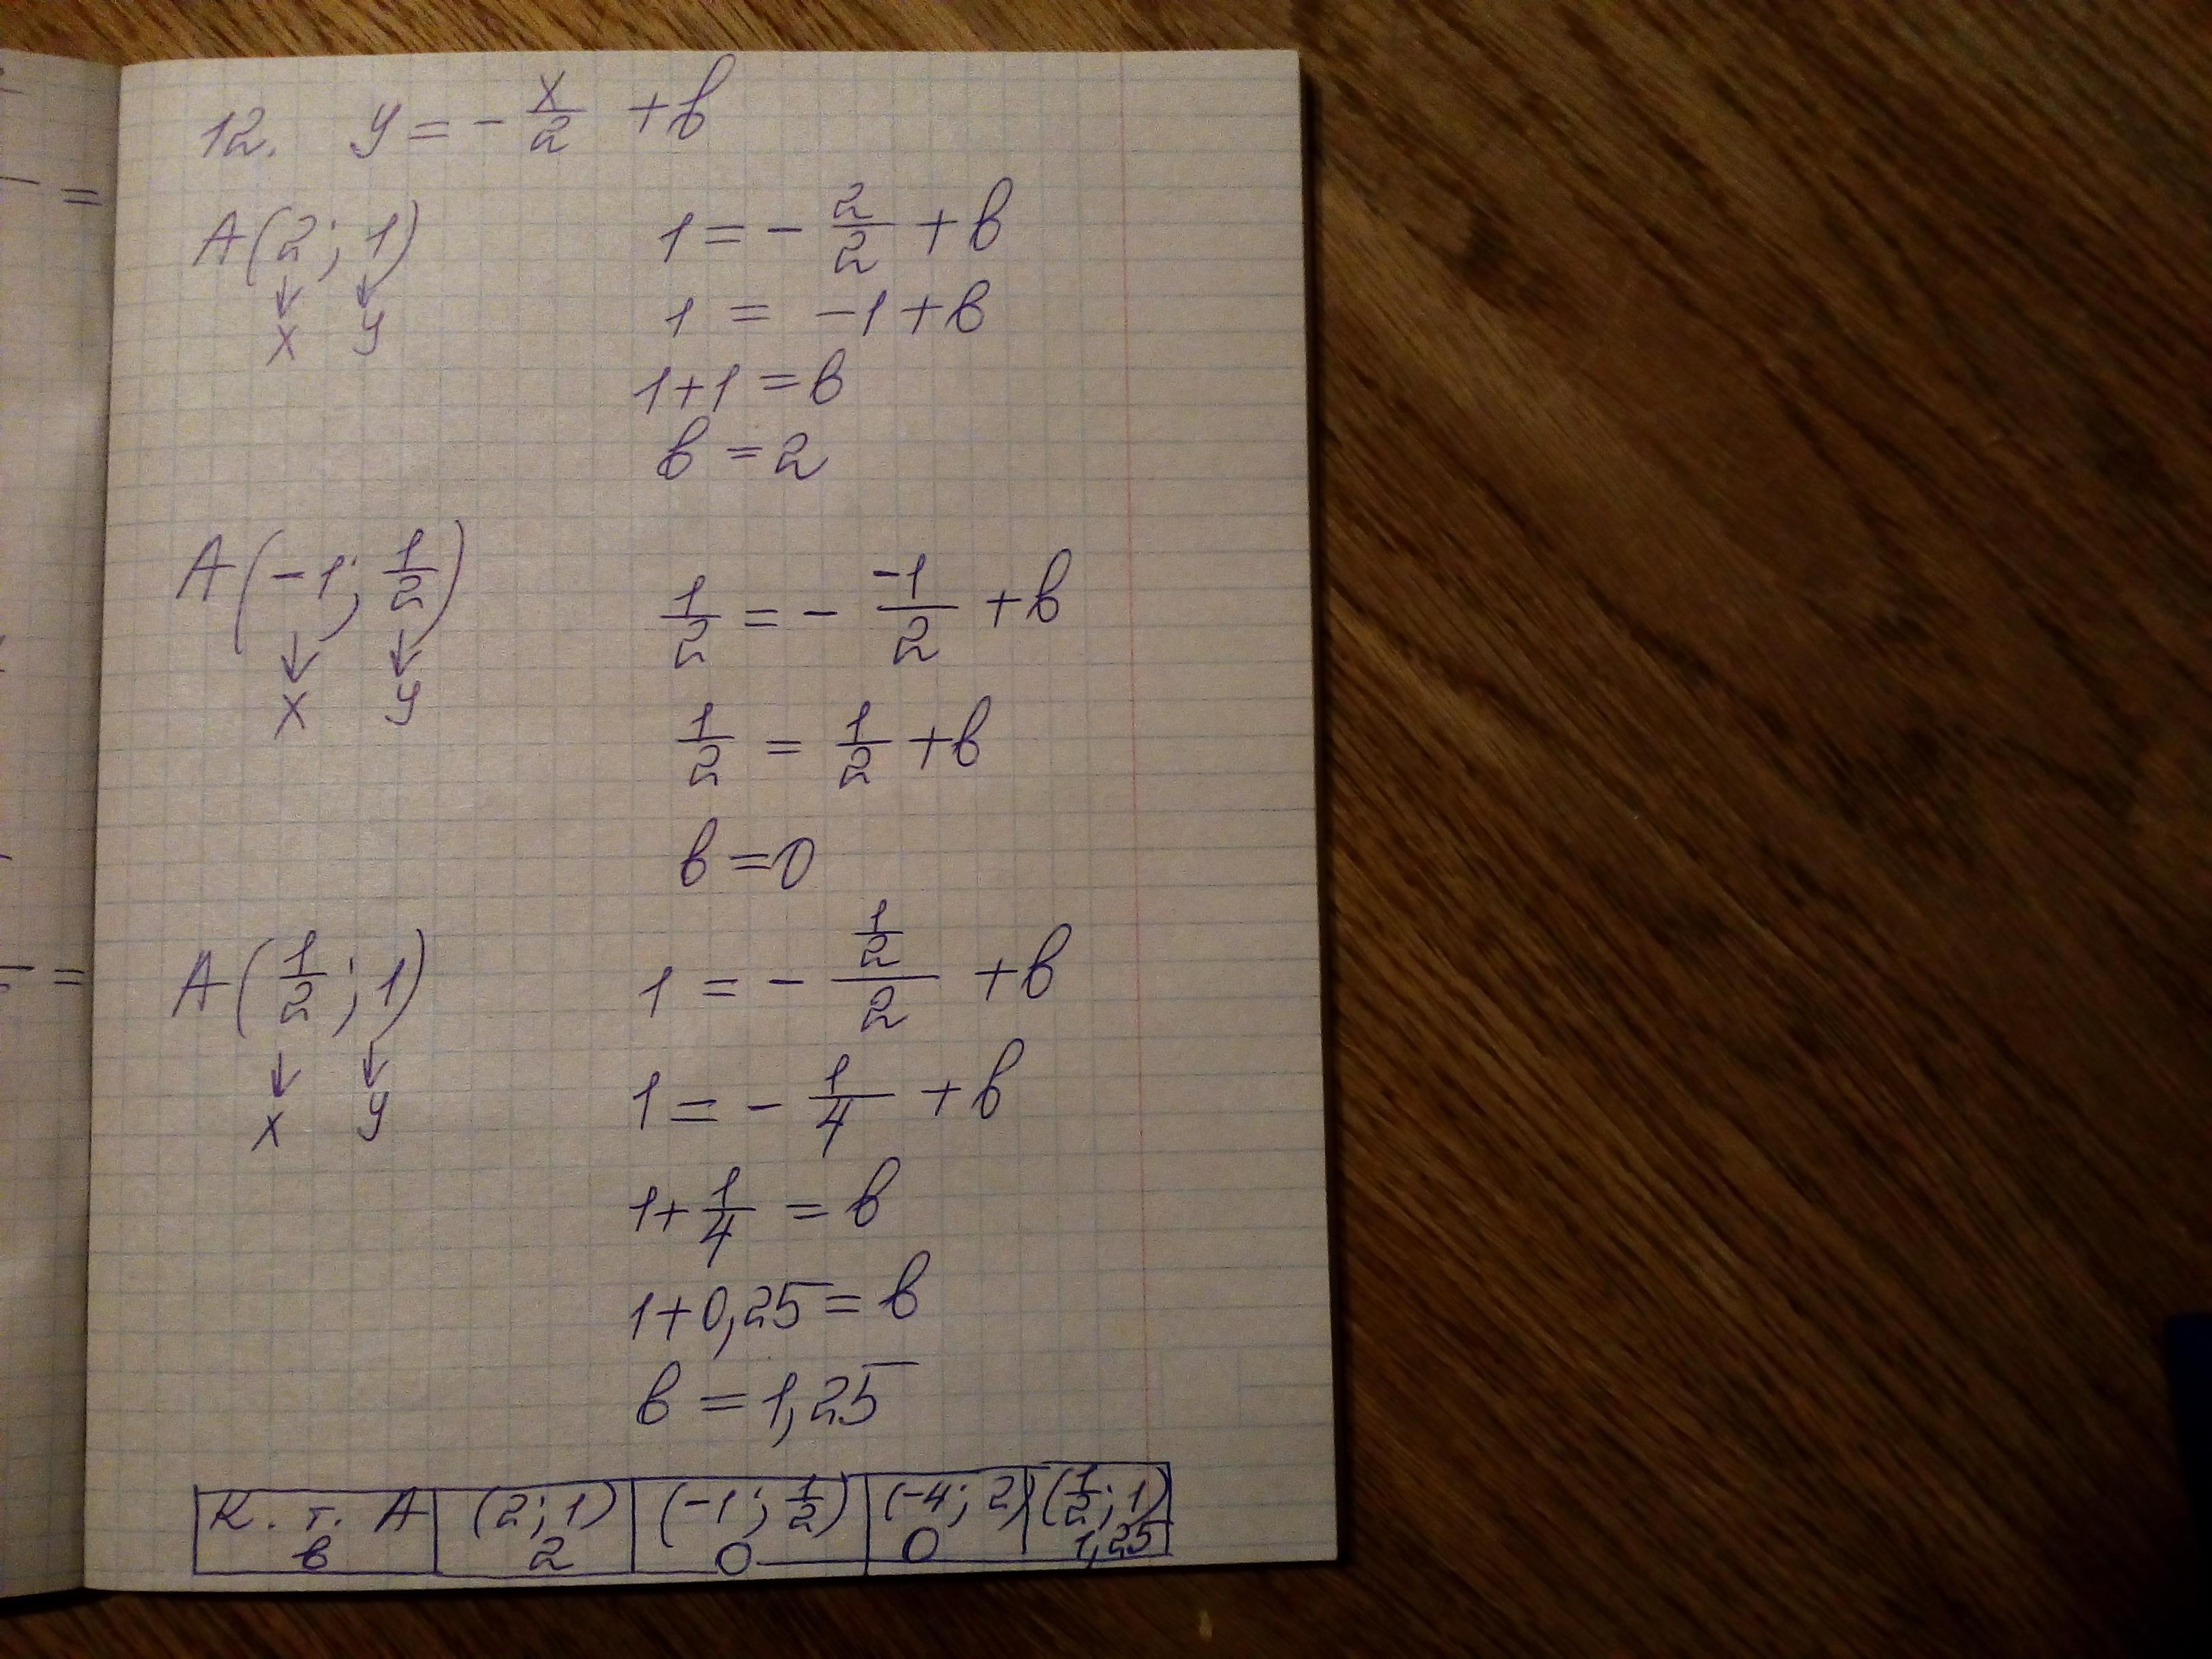 12. y = - x/2 + в
A(2; 1) 1 = - 2/2 + в
↓ ↓
x y 1 = -1 + в
1+1 = в
в = 2
A(-1; 1/2) 1/2 = - -1/2 + в
↓ ↓
x y 1/2 = 1/2 + в
в = 0
A(1/2; 1) 1 = - (1/2)/2 + в
↓ ↓
x y 1 = - 1/4 + в
1 + 1/4 = в
1 + 0,25 = в
в = 1,25
К. т. А (2; 1) (-1; 1/2) (-4; 2) (1/2; 1)
в 2 0 0 1,25